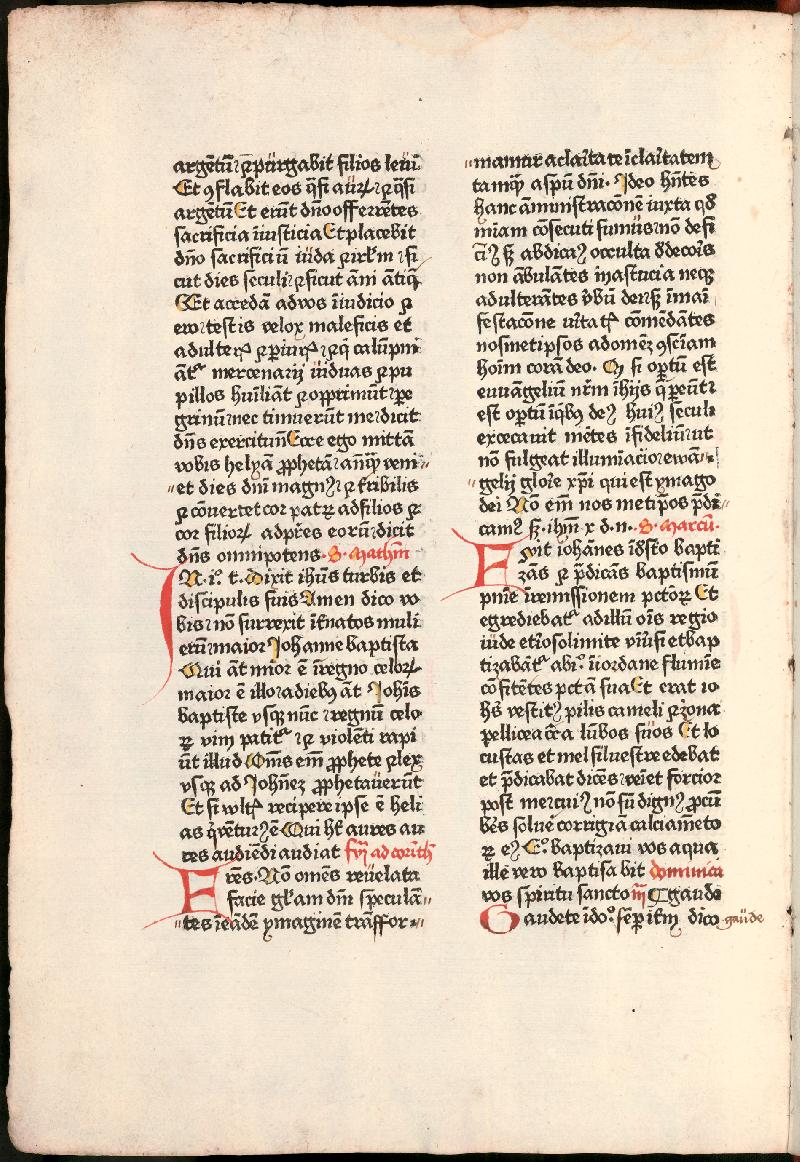 argētū ⁊ ꝑpurgabit filios leui
Et ꝯflabit eos q̄si aurꝝ ⁊ q̄si
argētū Et erūt dn̄o offerētes
sacrificia ī iusticia Et placebit
dn̄o sacrificiū iuda ⁊ irłm ⁊ si
cut dies seculi ⁊ sicut āni ātiq̄
Et accedā ad vos ī iudicio ⁊
ero testis velox maleficis et
adulteꝝ ⁊ ꝑiuꝝ ⁊ q̄ calūpni
āt᷑ mercenarij viduas ⁊ pu
pillos huīliāt ⁊ opprimūt ⁊ ꝑe
grinū nec timuerūt me dicit
dn̄s exercituū Ecce ego mittā
vobis helyā ꝓphetā añꝗ veni
et dies dn̄i magnꝰ ⁊ t̄ribilis
⁊ cōuertet cor patꝝ ad filios ⁊
cor filioꝝ ad pr̄es eorū dicit
dn̄s omnipotens. S. Mathm̄
N. i°. t. Dixit ih̄us turbis et
discipulis suis Amen dico vo
bis nō surrexit īt̄ natos muli
erū maior Johanne baptista
Qui āt mīor ē ī regno celoꝝ
maior ē illo a diebꝰ āt Joh̄is
baptiste vsq nūc regnū celo
ꝝ vim patit᷑ ⁊ violēti rapi
ūt illud Om̄s em̄ ꝓphete ⁊ lex
vsq ad Joh̄nez ꝓphetauerūt
Et si vult᷑ recipere ipse ē heli
as q̄ vēturꝰ ē Qui h̄t aures au
res audiēdi audiat s̄ij ad corinth̄
F r̄es. Nos omēs reuelata
facie gl̄am dn̄i speculā
tes ī eādē ymaginē trāsfor
mamur a claritate ī claritatem
tamꝗ a sp̄u dn̄i. Ideo h̄ntes
hanc āministracōnē iuxta qd̄
miam cōsecuti sumus nō defi
cimꝰ sꝫ abdicamꝰ occulta dedecoris
non ābulātes ī astucia neqꝫ
adulterātes v̄bū dei sꝫ ī mani
festacōne v̄itatꝭ cōmēdātes
nosmetipsos ad omēꝫ ꝯsciam
hoīm corā deo. Qꝫ si opertū est
euuāngeliū nr̄m ī hijs q̄ pereūt
est opertū ī qibꝰ deꝰ huiꝰ seculi
excecauit mētes īfideliū ut
nō fulgeat illumīacio ewan
gelij glorie xp̄i qui est ymago
dei Nō em̄ nos metip̄os p̄di
camꝰ sꝫ ih̄m x d. n. S. Marcū.
F vit ioh̄anes ī dest̄o bapti
zās ⁊ p̄dicās baptismū
pn̄ie ī remissionem pctōꝝ Et
egrediebat᷑ ad illū oīs regio
iude et ierosolimite vniūsi et bap
tizabāt᷑ ab i°. ī iordane flumīe
cōfitētes pctā sua Et erat io
h̄s vestitꝰ pilis cameli ⁊ zona
pellicea c̄ca lūbos suos Et lo
custas et mel siluestre edebat
et p̄dicabat dicēs veīet forcior
post me cuiꝰ nō sū dignꝰ ꝓcū
bēs soluē corrigiā calciamēto
ꝝ eiꝰ E°. baptizaui vos aqua
ille vero baptisabit dominica
vos spiritu sancto iij Gaude
Gaudete ī do°. sēꝑ itm̄ dico gaude